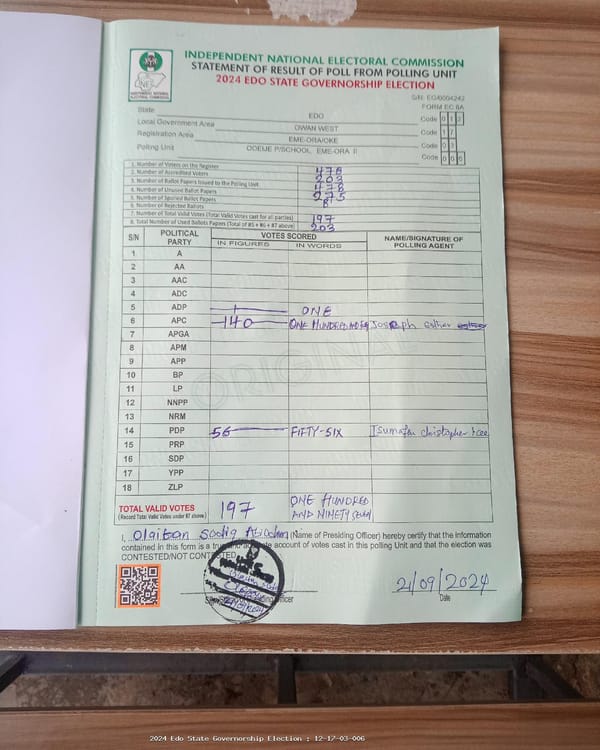 INDEPENDENT NATIONAL ELECTORAL COMMISSION
STATEMENT OF RESULT OF POLL FROM POLLING UNIT
2024 EDO STATE GOVERNORSHIP ELECTION
S/N: EG/0004242
FORM EC 8A
State EDO Code 0 1 2
Local Government Area OWAN WEST Code 1 7
Registration Area EME-ORA/OKE Code 0 3
Polling Unit ODEIJE P/SCHOOL, EME-ORA II Code 0 0 6
1. Number of Voters on the Register 478
2. Number of Accredited Voters 203
3. Number of Ballot Papers Issued to the Polling Unit 478
4. Number of Unused Ballot Papers 275
5. Number of Spoiled Ballot Papers
6. Number of Rejected Ballots 6
7. Number of Total Valid Votes (Total Valid Votes cast for all parties) 197
8. Total Number of Used Ballots Papers (Total of #5 + #6 + #7 above) 203
S/N POLITICAL PARTY VOTES SCORED NAME/SIGNATURE OF POLLING AGENT
IN FIGURES IN WORDS
1 A
2 AA
3 AAC
4 ADC
5 ADP 1 ONE
6 APC 140 ONE HUNDRED Joseph esther
7 APGA
8 APM
9 APP
10 BP
11 LP
12 NNPP
13 NRM
14 PDP 56 FIFTY-SIX christopher
15 PRP
16 SDP
17 YPP
18 ZLP
TOTAL VALID VOTES 197 ONE HUNDRED AND NINETY SEVEN
(Record Total Valid Votes under #7 above)
I, Olaitan Sodiq (Name of Presiding Officer) hereby certify that the information
contained in this form is a true account of votes cast in this polling Unit and that the election was
CONTESTED/NOT CONTESTED
21/09/2024
Officer Date
ORIGINAL
2024 Edo State Governorship Election : 12-17-03-006